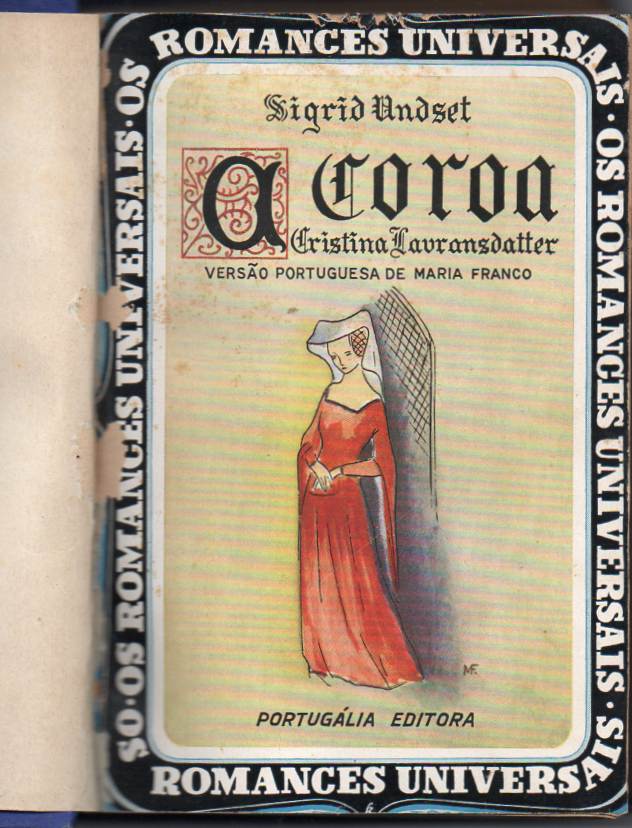 OS ROMANCES UNIVERSAIS · OS ROMANCES UNIVERSAIS ·
Sigrid Undset
A Coroa
Cristina Lavransdatter
VERSÃO PORTUGUESA DE MARIA FRANCO
MF.
PORTUGÁLIA EDITORA
OS · OS ROMANCES UNIVERSAIS ·
ROMANCES UNIVERSAIS